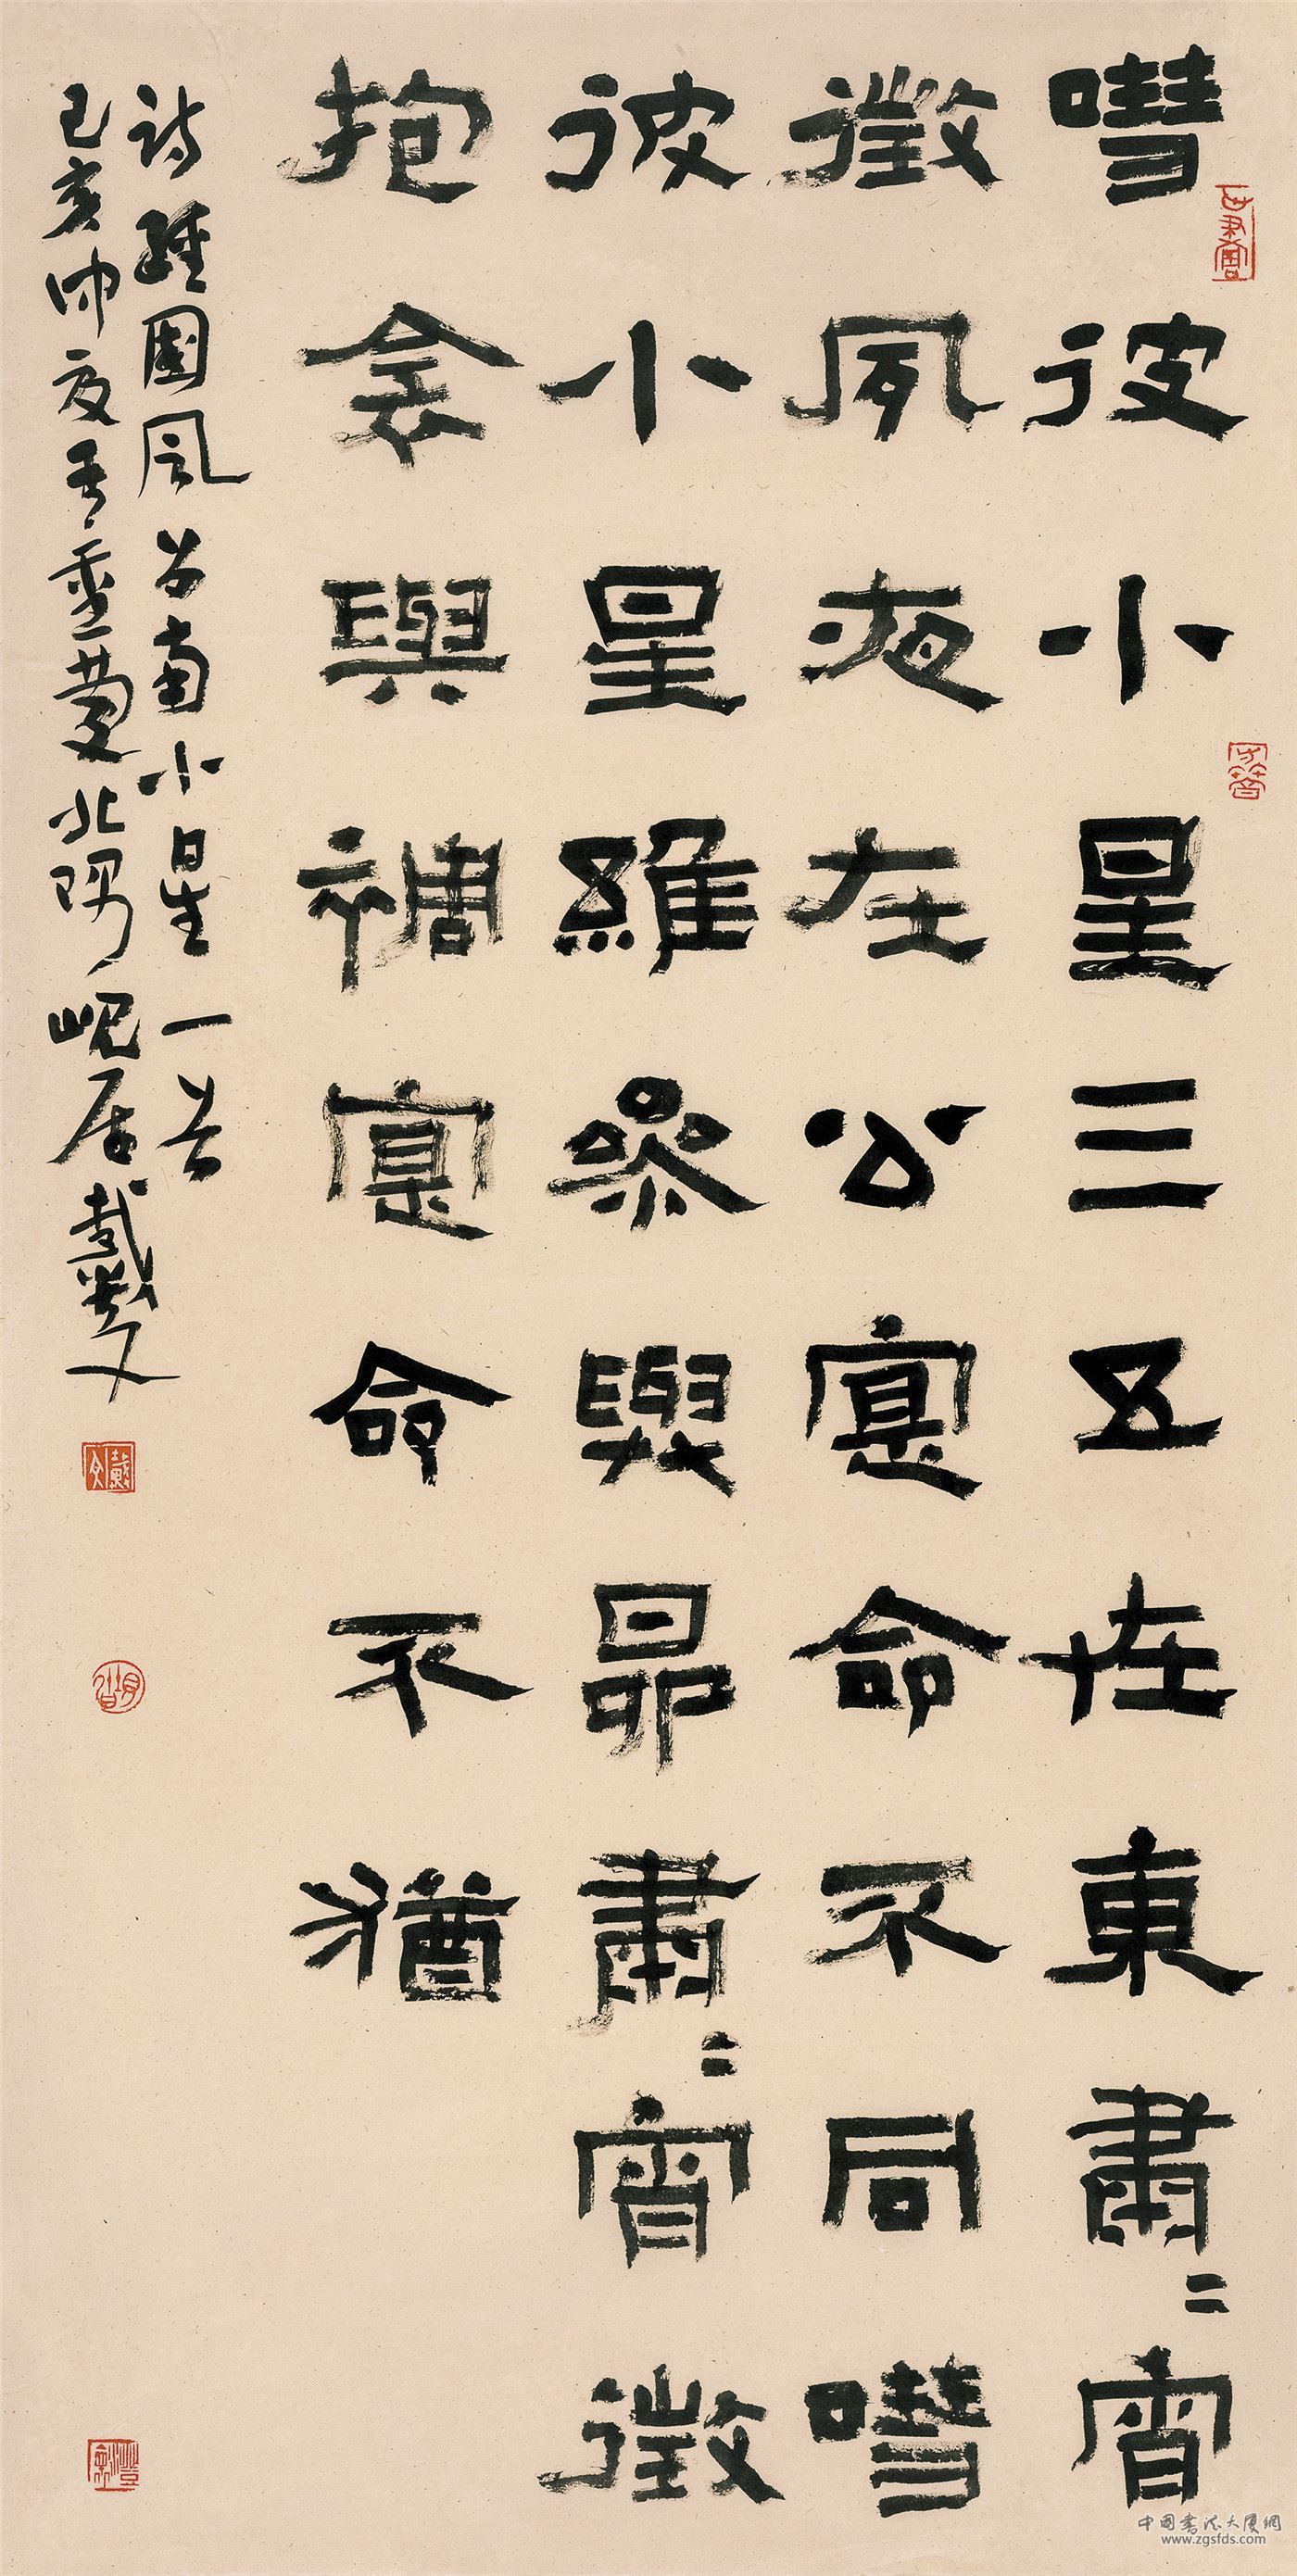 嘒彼小星三五在東肅〻宵
徵夙夜在公寔命不同嘒
彼小星維參與昴肅〻宵徵
抱衾與裯寔命不猶
詩經國風召南小星一首
己亥仲夏于北隅峴居戴文
中国书法大厦網
www.zgsfds.com